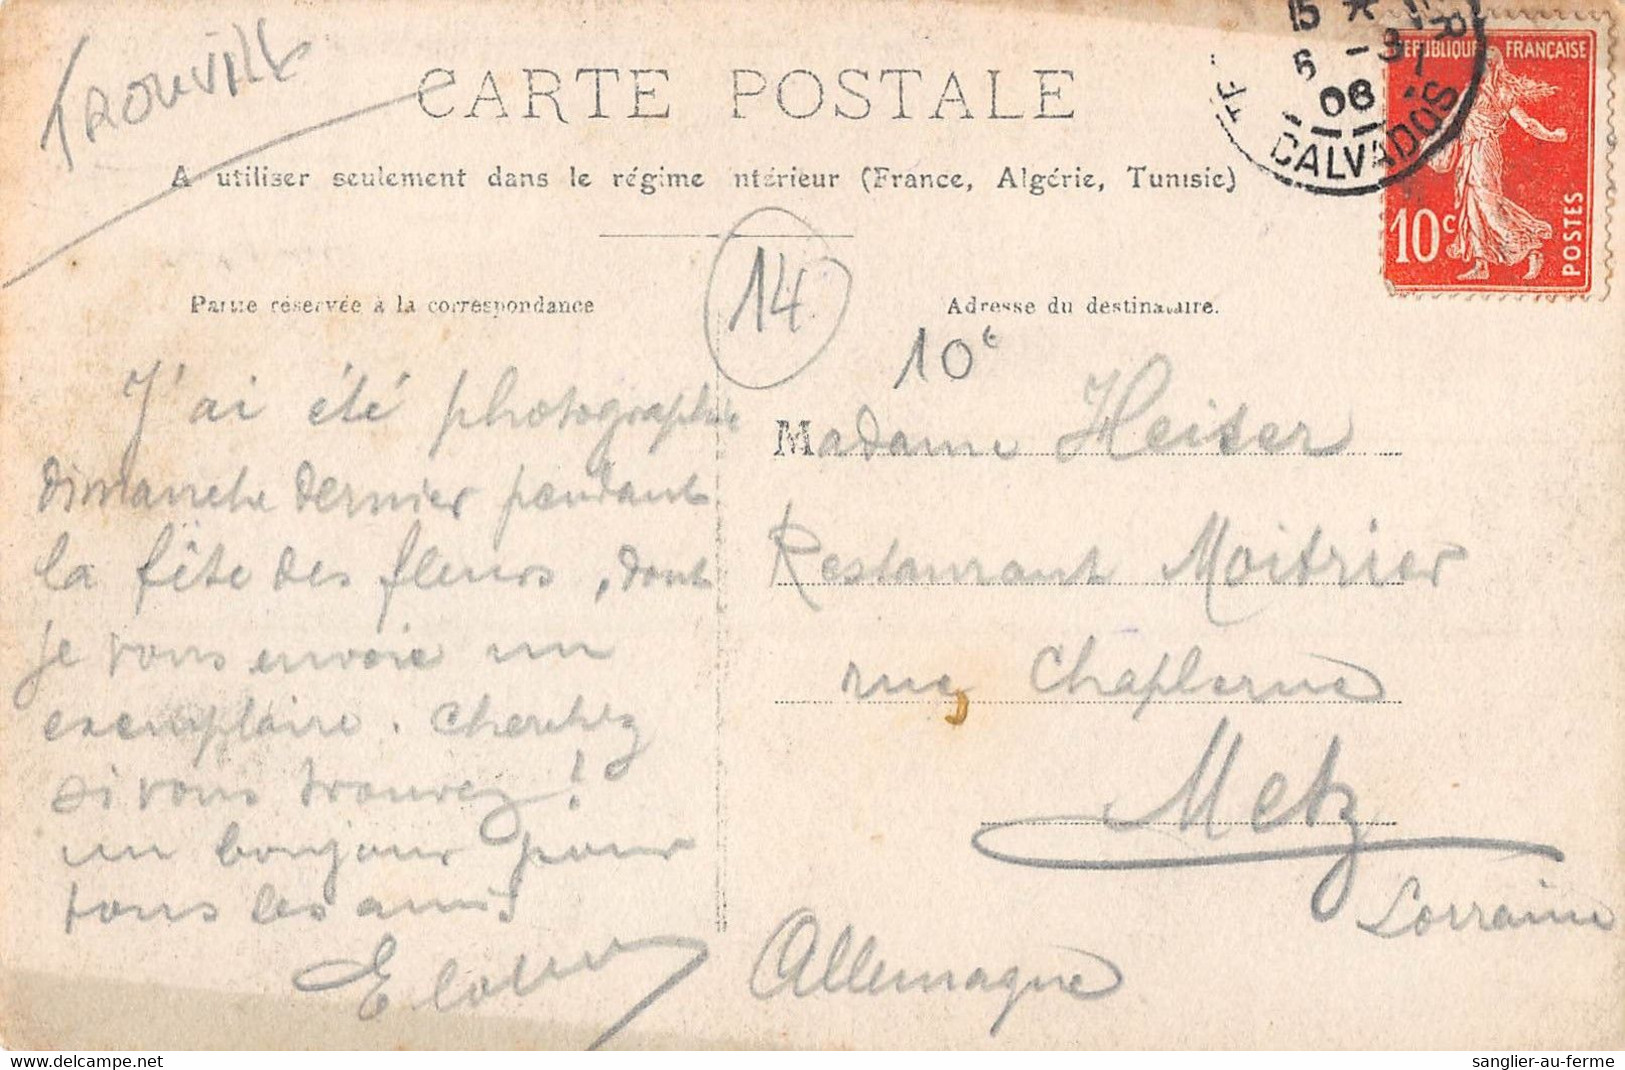 Trouville
CARTE POSTALE
A utiliser seulement dans le régime ntérieur (France, Algérie, Tunisie)
15 *
6 -8
08
CALVADOS
REPUBLIQUE FRANÇAISE
10c
POSTES
14
Partie réservée à la correspondance
J'ai été photographié
dimanche dernier pendant
la fête des fleurs, dont
je vous envoie un
exemplaire. Cherchez
si vous trouvez!
un bonjour pour
tous les amis
Adresse du destinataire.
10€
Madame Heiser
Restaurant Moitrier
rue Chaplerue
Metz
Lorraine
Allemagne
sanglier-au-ferme